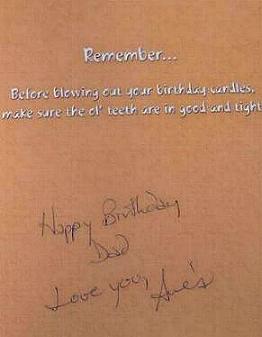 Remember...
Before blowing out your birthday candles,
make sure the ol' teeth are in good and tight
Happy Birthday
Dad
Love you,